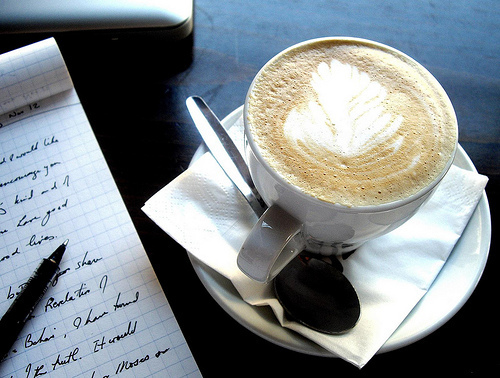 Nov 12
I would like
encourage you
kind and I
have good
lives.
you share
Revelation?
Bahai, I have found
the truth. It would
Moses or